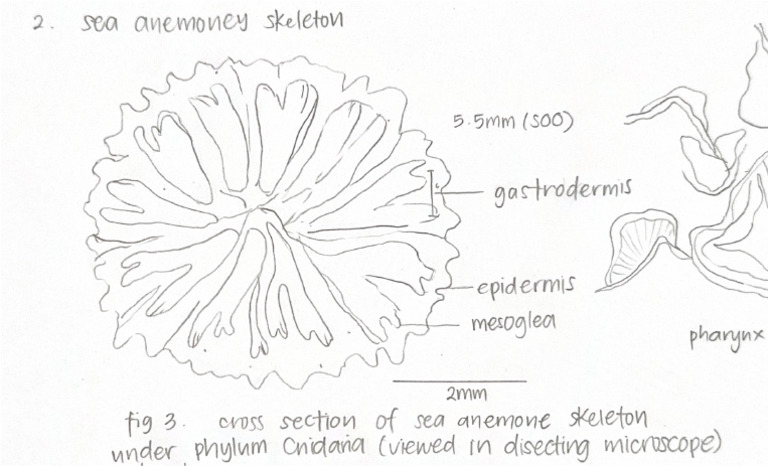 2. sea anemoney skeleton
5.5mm (500)
gastrodermis
epidermis
mesoglea
pharynx
2mm
fig 3. cross section of sea anemone skeleton
under phylum Cnidaria (viewed in disecting microscope)